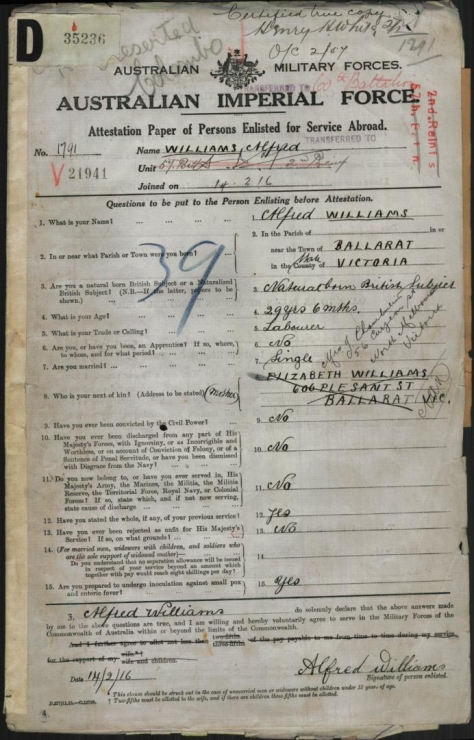 Certified true copy
D
35236
Deserted
Colombo
O/C 2/57
1791
AUSTRALIAN MILITARY FORCES.
TRANSFERRED TO 60th Battalion
AUSTRALIAN IMPERIAL FORCE
2nd Reints
Attestation Paper of Persons Enlisted for Service Abroad.
No. 1791
Name WILLIAMS, Alfred
TRANSFERRED TO
V 21941
Unit
Joined on 14.2.16
Questions to be put to the Person Enlisting before Attestation.
39
1. What is your Name? ... ... ... 1. Alfred WILLIAMS
2. In or near what Parish or Town were you born? 2. In the Parish of in or
near the Town of BALLARAT
in the County of State VICTORIA
3. Are you a natural born British Subject or a Naturalized
British Subject? (N.B.—If the latter, papers to be
shown.) ... 3. Natural born British Subject
4. What is your Age? ... ... 4. 29 yrs 6 mths.
5. What is your Trade or Calling? ... 5. Labourer
6. Are you, or have you been, an Apprentice? If so, where,
to whom, and for what period? ... 6. No
7. Are you married? ... ... 7. Single
8. Who is your next of kin? (Address to be stated) (Mother) 8. ELIZABETH WILLIAMS
606 PLESANT ST
BALLARAT VIC.
North Melbourne
Victoria
9. Have you ever been convicted by the Civil Power? ... 9. No
10. Have you ever been discharged from any part of His
Majesty's Forces, with Ignominy, or as Incorrigible and
Worthless, or on account of Conviction of Felony, or of a
Sentence of Penal Servitude, or have you been dismissed
with Disgrace from the Navy? ... 10. No
11. Do you now belong to, or have you ever served in, His
Majesty's Army, the Marines, the Militia, the Militia
Reserve, the Territorial Force, Royal Navy, or Colonial
Forces? If so, state which, and if not now serving,
state cause of discharge ... 11. No
12. Have you stated the whole, if any, of your previous service? 12. Yes
13. Have you ever been rejected as unfit for His Majesty's
Service? If so, on what grounds? ... 13. No
14. (For married men, widowers with children, and soldiers who
are the sole support of widowed mother)—
Do you understand that no separation allowance will be issued
in respect of your service beyond an amount which
together with pay would reach eight shillings per day? 14.
15. Are you prepared to undergo inoculation against small pox
and enteric fever? ... 15. Yes
I, Alfred Williams do solemnly declare that the above answers made
by me to the above questions are true, and I am willing and hereby voluntarily agree to serve in the Military Forces of the
Commonwealth of Australia within or beyond the limits of the Commonwealth.
And I further agree to allot not less than two-fifths three-fifths of the pay payable to me from time to time during my service,
for the support of my wife. wife and children.
Date 14/2/16
Alfred Williams
Signature of person enlisted.
* This clause should be struck out in the case of unmarried men or widowers without children under 18 years of age.
† Two-fifths must be allotted to the wife, and if there are children three-fifths must be allotted.